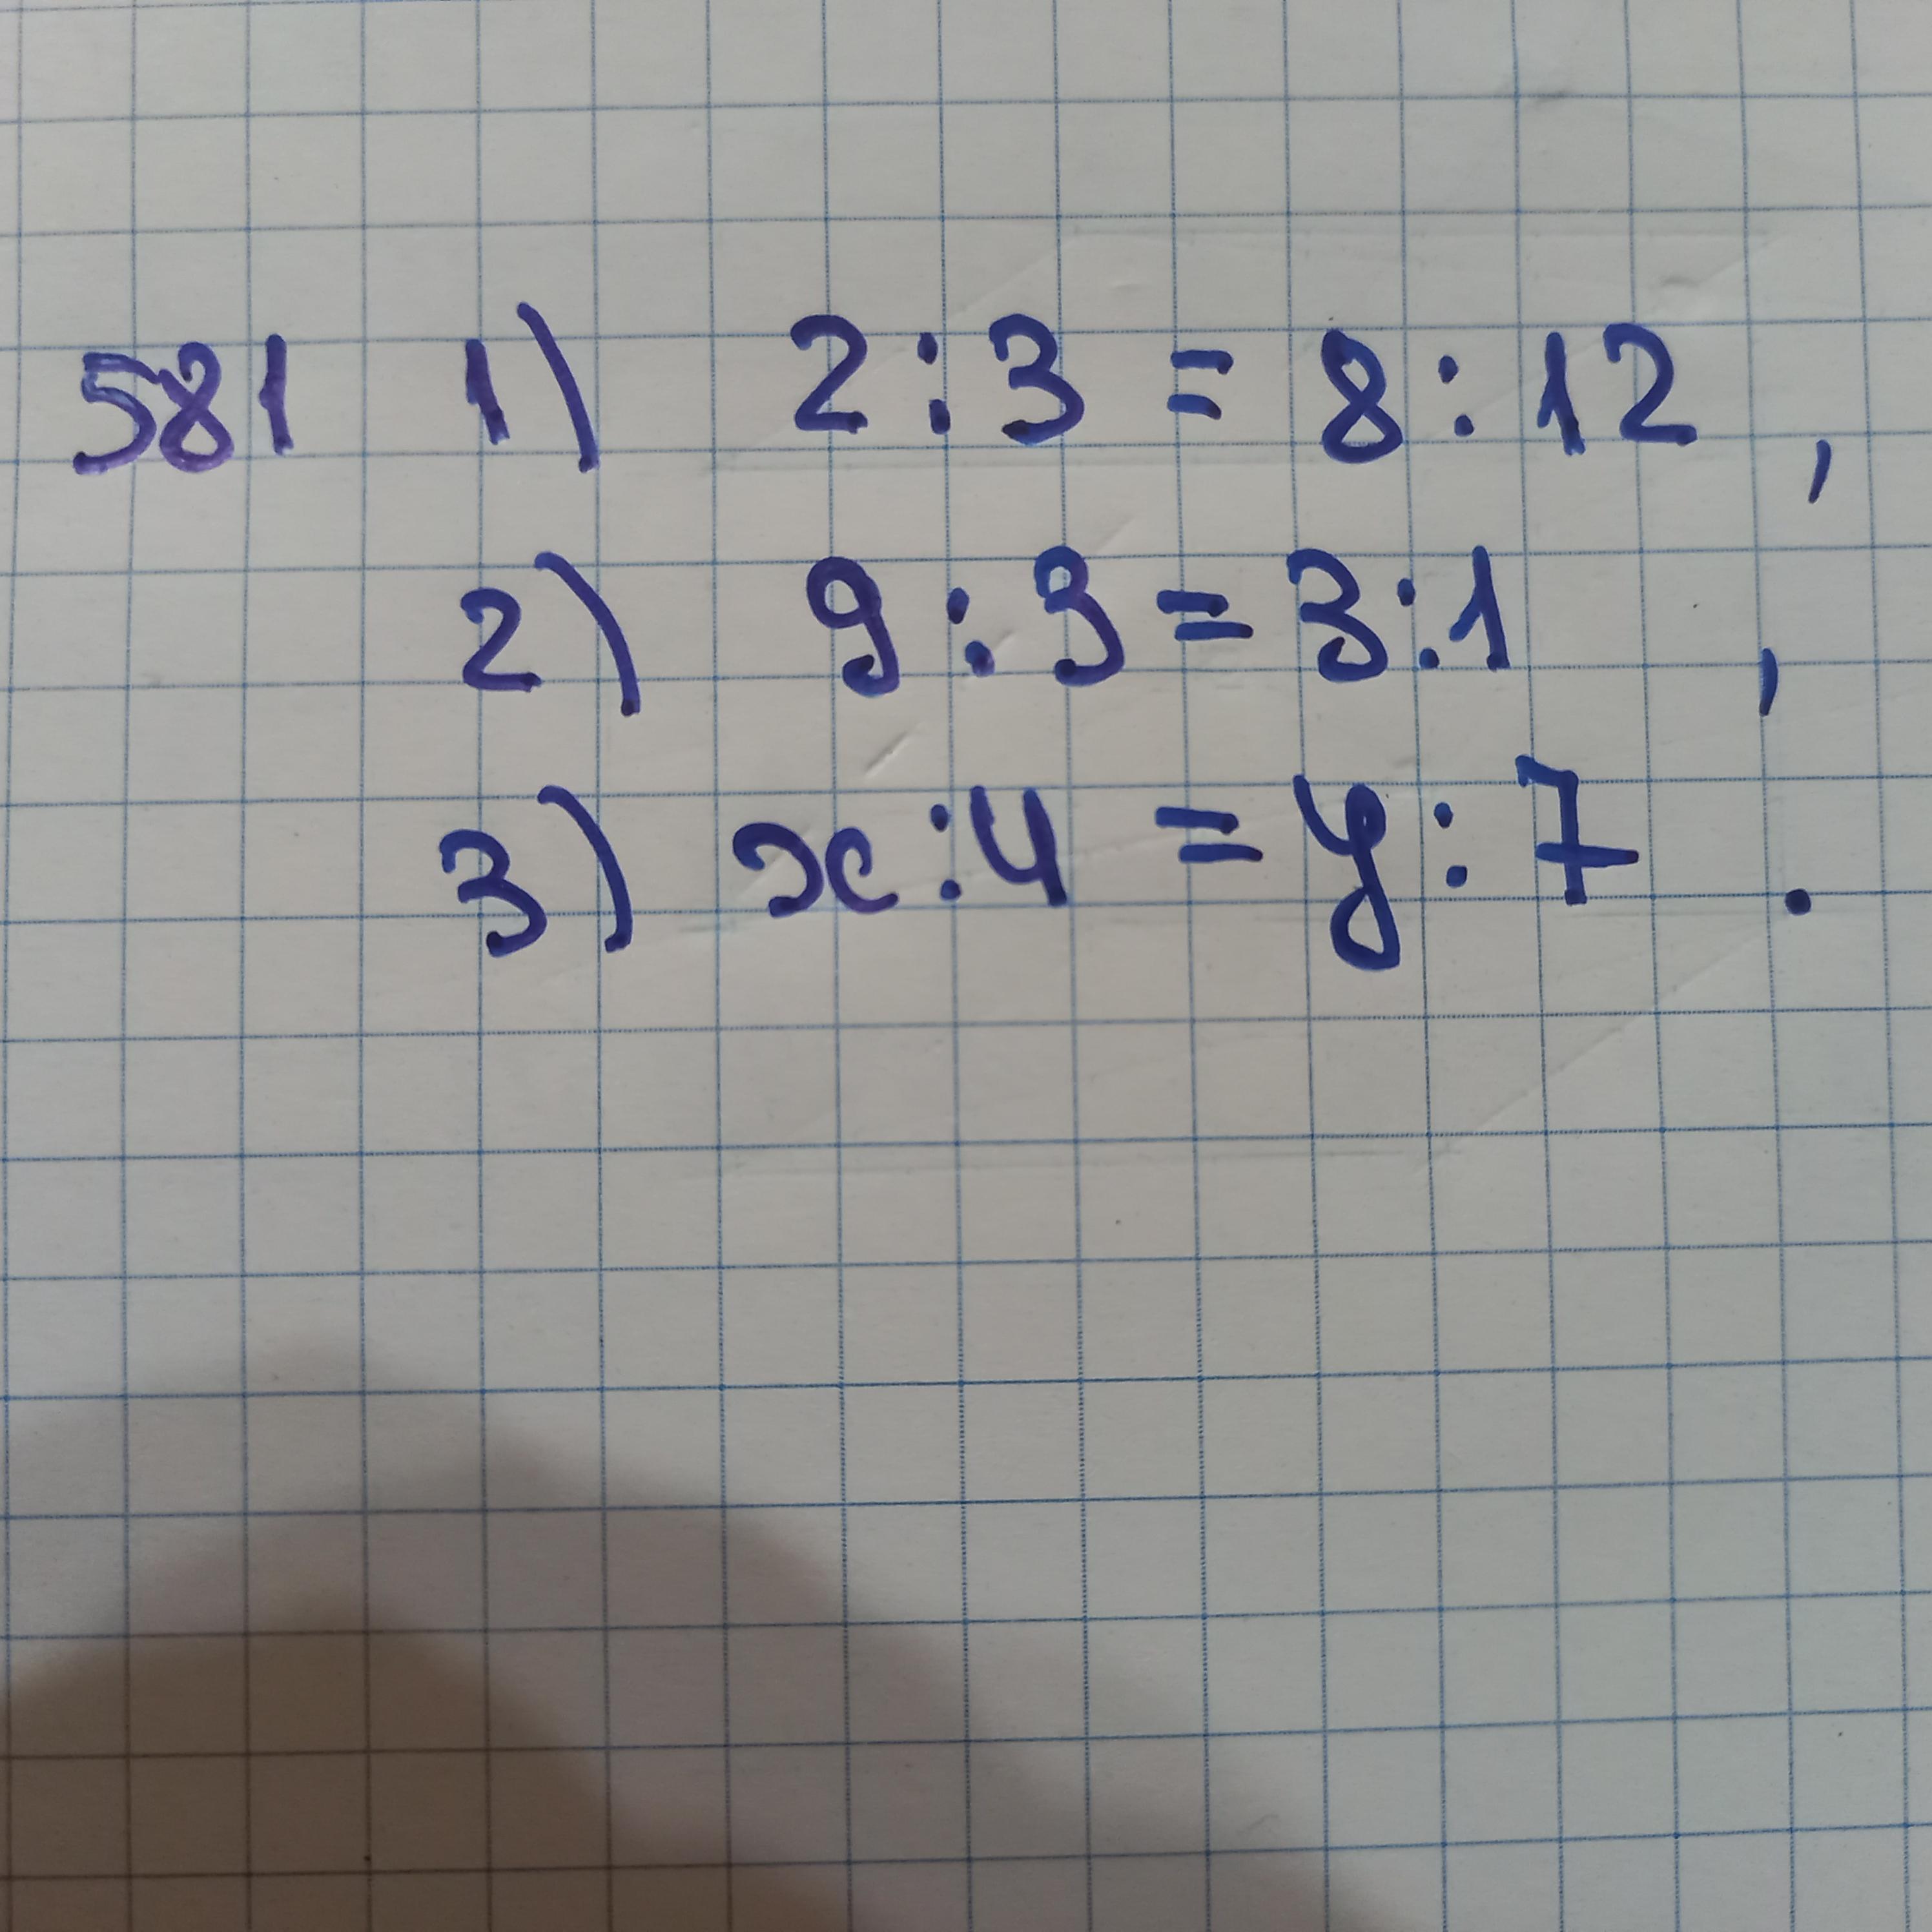 581 1) 2:3 = 8:12,
2) 9:3 = 3:1,
3) x:4 = y:7.